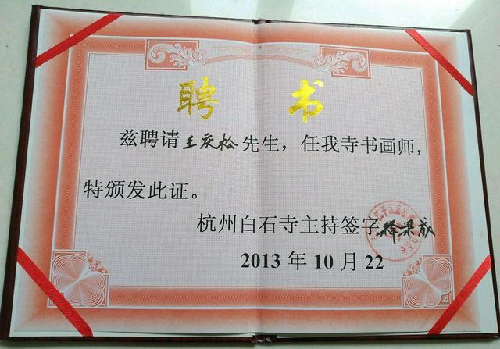 聘 书
兹聘请王庆松先生，任我寺书画师，
特颁发此证。
杭州白石寺主持签字
2013 年 10 月 22